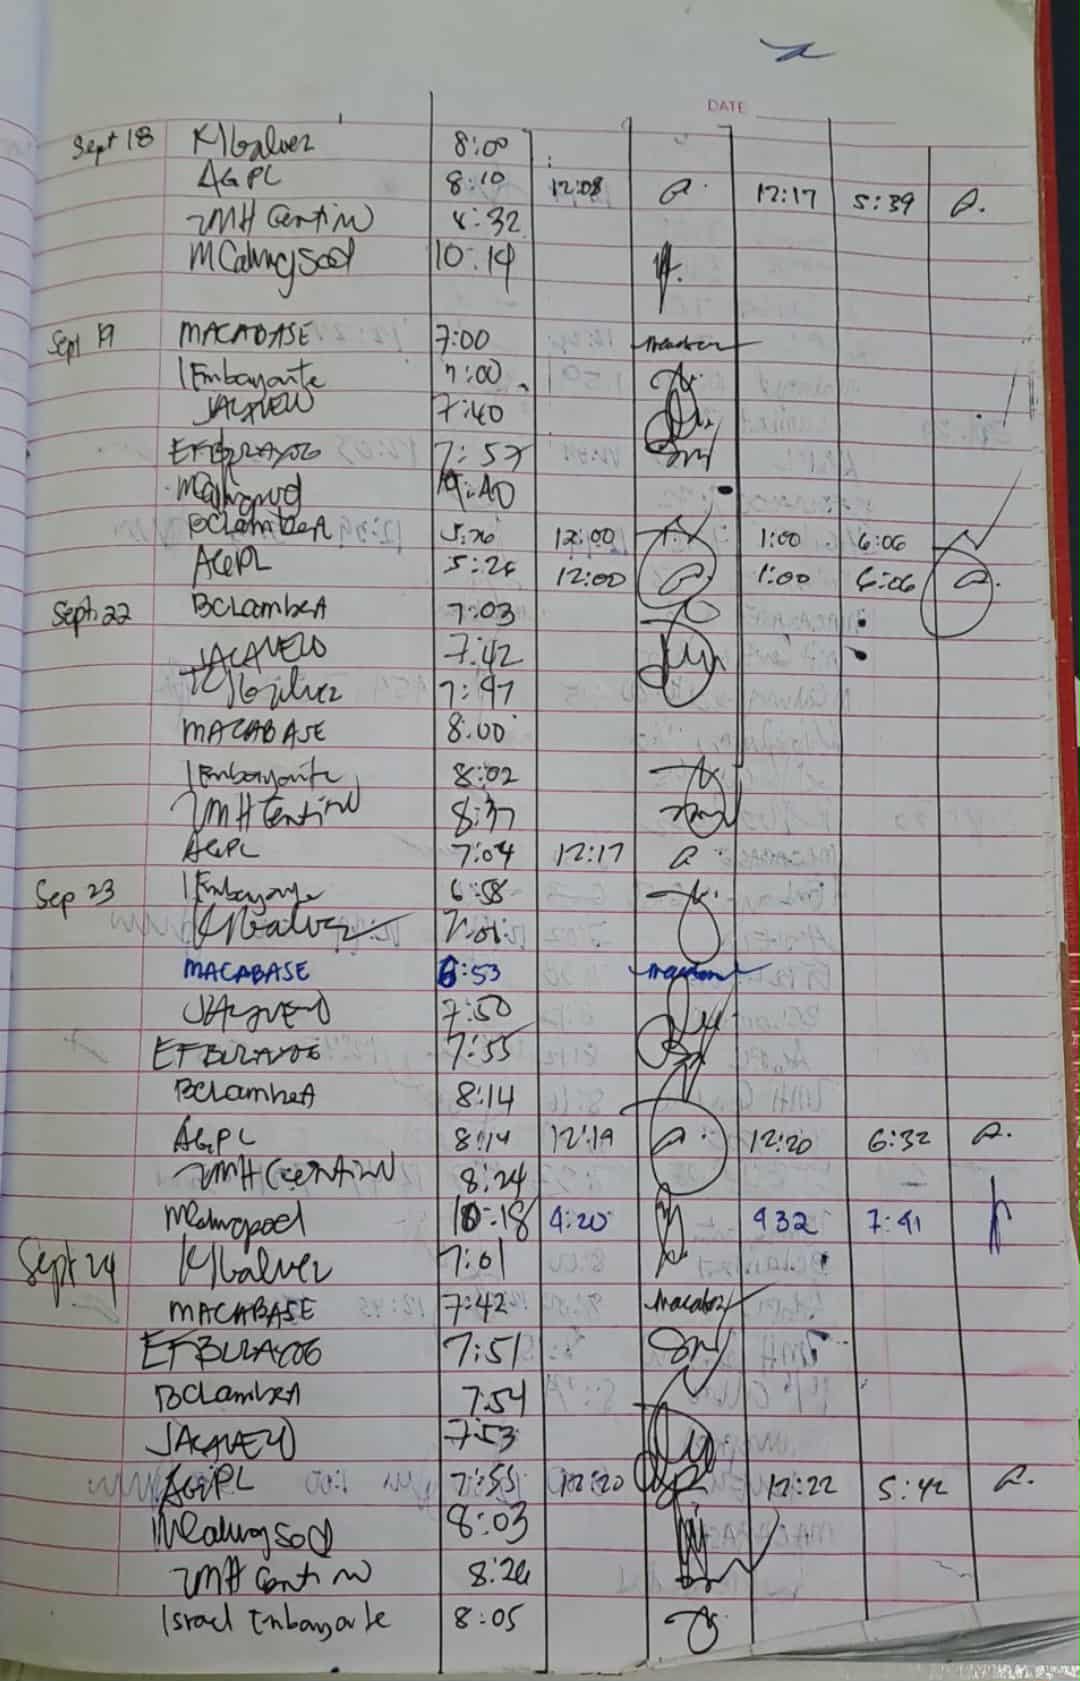 DATE
Sept 18 K/Galvez 8:00
AGPL 8:10 12:08 12:17 5:39
JMH Centino 8:32
MCalingsod 10:14
Sept 19 MACABASE 7:00
I Embayarte 7:00
JACAVEO 7:40
EFBURAYOG 7:57
40
BClambeA 5:26 12:00 1:00 6:06
AGPL 5:26 12:00 1:00 6:06
Sept. 22 BClambeA 7:03
JACAVEO 7:42
7:47
MACABASE 8:00
I Embayarte 8:02
JMH Centino 8:37
AGPL 7:04 12:17
Sep 23 I Embayarte 6:58
K/Galvez 7:01
MACABASE 6:53
JACAVEO 7:50
EFBURAYOG 7:55
BClambeA 8:14
AGPL 8:14 12:19 12:20 6:32
JMH Centino 8:24
MCalingsod 10:18 4:20 432 7:41
Sept 24 K/Galvez 7:01
MACABASE 7:42
EFBURAYOG 7:51
BClambeA 7:54
JACAVEO 7:53
AGPL 7:55 12:20 12:22 5:42
MCalingsod 8:03
JMH Centino 8:26
Israel Embayarte 8:05